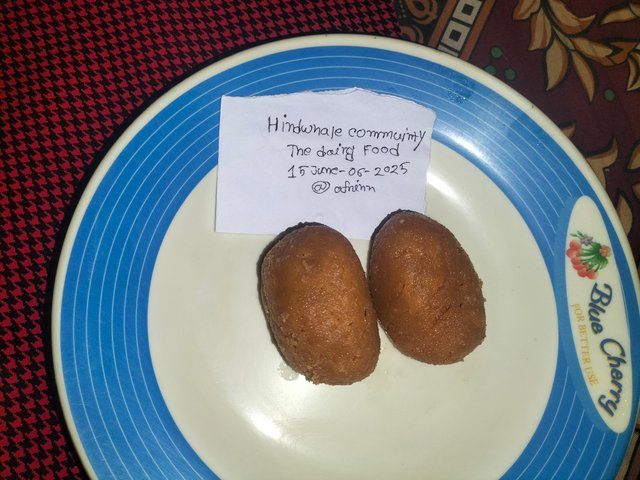 Hindwhale community
The dairg Food
15 June-06-2025
@afrinn
Blue Cherry
FOR BETTER USE